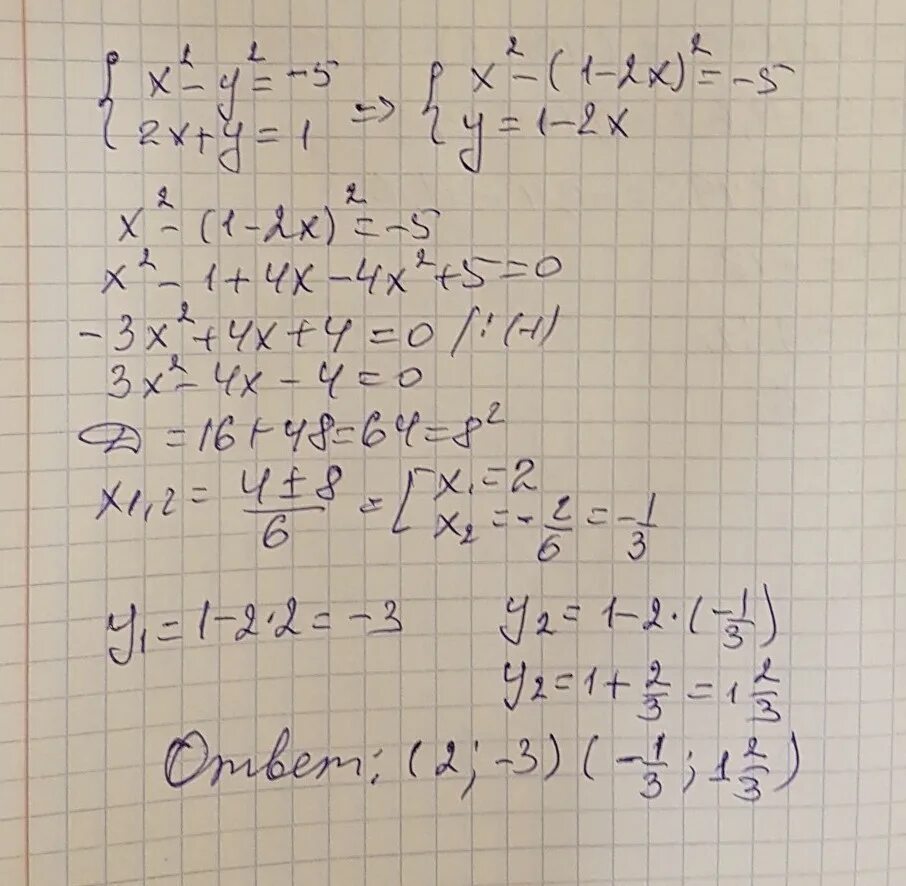 { x² - y² = -5 => { x² - (1 - 2x)² = -5
2x + y = 1 y = 1 - 2x
x² - (1 - 2x)² = -5
x² - 1 + 4x - 4x² + 5 = 0
-3x² + 4x + 4 = 0 /: (-1)
3x² - 4x - 4 = 0
D = 16 + 48 = 64 = 8²
x1,2 = (4 ± 8)/6 = [ x₁ = 2
x₂ = -2/6 = -1/3
y₁ = 1 - 2·2 = -3 y₂ = 1 - 2·(-1/3)
y₂ = 1 + 2/3 = 1 2/3
Ответ: (2; -3) (-1/3; 1 2/3)